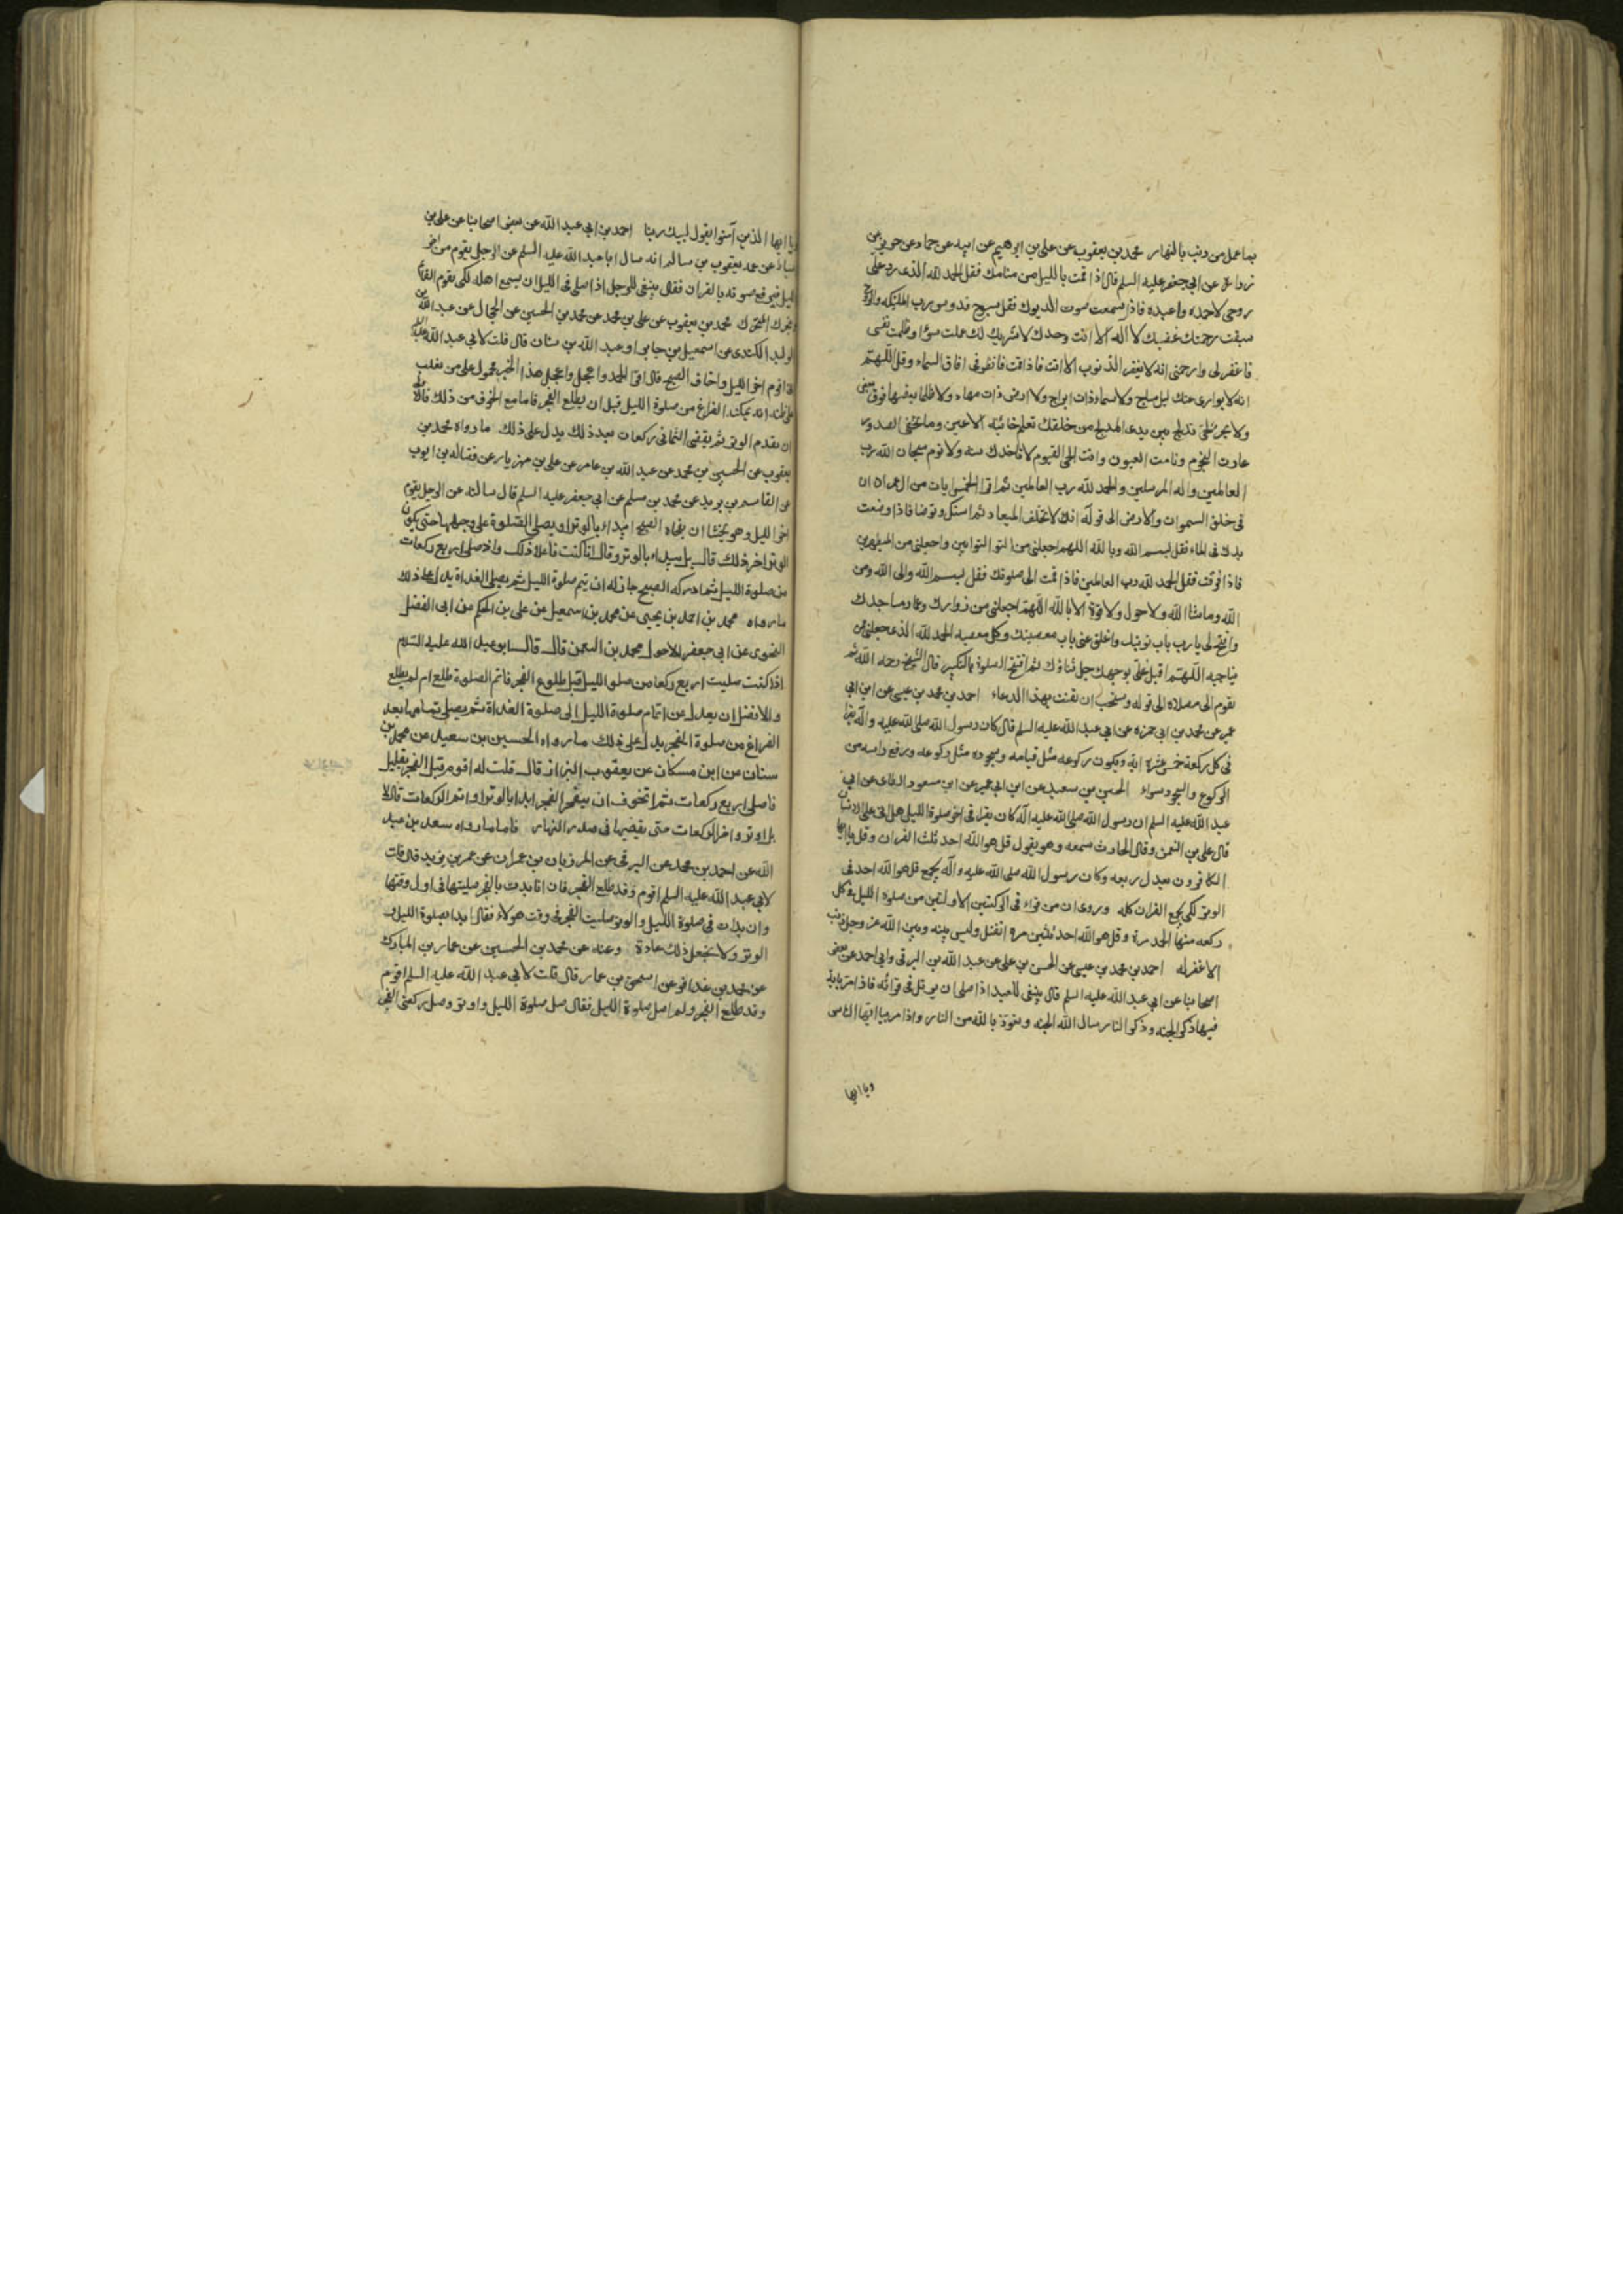 بما عمل من ذنب بالنهار محمد بن يعقوب عن علي بن ابرهيم عن ابيه عن حماد عن حريز عن
زرارة عن ابي جعفر عليه السلم قال اذا قمت بالليل من منامك فقل الحمد لله الذي رد علي
روحي لاحمده واعبده فاذا سمعت صوت الديوك فقل سبوح قدوس رب الملئكه والروح
سبقت رحمتك غضبك لا اله الا انت وحدك لا شريك لك عملت سوءا وظلمت نفسي
فاغفر لي وارحمني انه لا يغفر الذنوب الا انت فاذا قمت فانظر في افاق السماء وقل اللهم
انه لا يوارى عنك ليل ساج ولا سماء ذات ابراج ولا ارض ذات مهاد ولا ظلمات بعضها فوق بعض
ولا بحر لجي تدلج بين يدي المدلج من خلقك تعلم خائنة الاعين وما تخفي الصدور
غارت النجوم ونامت العيون وانت الحي القيوم لا تاخذك سنه ولا نوم سبحان الله رب
العالمين واله المرسلين والحمد لله رب العالمين ثم اقرا الخمس ايات من ال عمران ان
في خلق السموات والارض الى قوله انك لا تخلف الميعاد ثم استك وتوضا فاذا وضعت
يدك في الماء فقل بسم الله وبالله اللهم اجعلني من التوابين واجعلني من المتطهرين
فاذا فرغت فقل الحمد لله رب العالمين فاذا قمت الى صلوتك فقل بسم الله والى الله ومن
الله وما شا الله ولا حول ولا قوة الا بالله اللهم اجعلني من زوارك وعمار مساجدك
وافتح لي يا رب باب توبتك واغلق عني باب معصيتك وكل معصيه الحمد لله الذي جعلني ممن
يناجيه اللهم اقبل علي بوجهك جل ثناؤك ثم افتتح الصلوة بالتكبير قال الشيخ رحمه الله ثم
يقوم الى مصلاه الى قوله وستحب ان يقنت بهذا الدعاء احمد بن محمد بن عيسى عن ابن ابي
عمير عن محمد بن ابي حمزه عن ابي عبد الله عليه السلم قال كان رسول الله صلى الله عليه واله يقرا
في كل ركعة خمس عشرة اية ويكون ركوعه مثل قيامه وسجوده مثل ركوعه ورفع راسه من
الركوع والسجود سواء الحسين بن سعيد عن ابن ابي عمير عن ابي مسعود الطائي عن ابي
عبد الله عليه السلم ان رسول الله صلى الله عليه اله كان يقرا في اخر صلوة الليل هل اتى على الانسان
قال علي بن النعمن وقال الحارث سمعه وهو يقول قل هو الله احد ثلث القران وقل يا ايها
الكافرون يعدل ربعه وكان رسول الله صلى الله عليه واله يجمع قل هو الله احد في
الوتر لكي يجمع القران كله وروى ان من قراء في الركعتين الاولتين من صلوة الليل في كل
ركعه منها الحمد مرة وقل هو الله احد ثلثين مره انفتل وليس بينه وبين الله عز وجل ذنب
الا غفر له احمد بن محمد بن عيسى عن الحسن بن علي عن عبد الله بن البرقي وابي احمد عن بعض
اصحابنا عن ابي عبد الله عليه السلم قال ينبغي للعبد اذا صلى ان يرتل في قرائه فاذا مر باية
فيها ذكر الجنه وذكر النار سال الله الجنه وتعوذ بالله من النار واذا مر بيا ايها الناس
ويا ايها
يا ايها الذين آمنوا يقول لبيك ربنا احمد بن ابي عبد الله عن بعض اصحابنا عن علي بن
اسباط عن عمه يعقوب بن سالم انه سال ابا عبد الله عليه السلم عن الرجل يقوم من اخر
الليل فيرفع صوته بالقران فقال ينبغي للرجل اذا صلى في الليل ان يسمع اهله لكي يقوم القائم
ويتحرك المتحرك محمد بن يعقوب عن علي بن محمد عن محمد بن الحسين عن الحجال عن عبد الله بن
الوليد الكندي عن اسمعيل بن جابر او عبد الله بن سنان قال قلت لابي عبد الله عليه السلم
اني اقوم اخر الليل واخاف الصبح قال اقرا الحمد واعجل واعجل هذا الخبر محمول على من تغلب
على ظنه انه يمكنه الفراغ من صلوة الليل قبل ان يطلع الفجر فاما مع الخوف من ذلك فالاولى
ان يقدم الوتر ثم يقضي الثماني ركعات بعد ذلك يدل على ذلك ما رواه محمد بن
يعقوب عن الحسين بن محمد عن عبد الله بن عامر عن علي بن مهزيار عن فضاله بن ايوب
عن القاسم بن بريد عن محمد بن مسلم عن ابي جعفر عليه السلم قال سالته عن الرجل يقوم
اخر الليل وهو يخشا ان يفجاه الصبح ايبداء بالوتر او يصلي الصلوة على وجهها حتى يكون
الوتر اخر ذلك قال بل يبداء بالوتر وقال انا كنت فاعلا ذلك واذ صلى اربع ركعات
من صلوة الليل ثم ادركه الصبح جاز له ان يتم صلوة الليل ثم يصلي الغداة يدل على ذلك
ما رواه محمد بن احمد بن يحيى عن محمد بن اسمعيل عن علي بن الحكم عن ابي الفضل
النحوي عن ابي جعفر الاحول محمد بن النعمن قال قال ابو عبد الله عليه السلام
اذا كنت صليت اربع ركعا من صلوا الليل قبل طلوع الفجر فاتم الصلوة طلع ام لم يطلع
والافضل ان يعدل عن اتمام صلوة الليل الى صلوة الغداة ثم يصلي تمامها بعد
الفراغ من صلوة الفجر يدل على ذلك ما رواه الحسين بن سعيد عن محمد بن
سنان عن ابن مسكان عن يعقوب البزاز قال قلت له اقوم قبل الفجر بقليل
فاصلي اربع ركعات ثم اتخوف ان ينفجر الفجر ابدا بالوتر او اتم الركعات قال لا
بل اوتر واخر الركعات حتى يقضيها في صدر النهار فاما ما رواه سعد بن عبد
الله عن احمد بن محمد عن البرقي عن المرزبان بن عمران عن عمر بن يزيد قال قلت
لابي عبد الله عليه السلم اقوم وقد طلع الفجر فان انا بدت بالفجر صليتها في اول وقتها
وان بدات في صلوة الليل والوتر صليت الفجر في وقت هولاء فقال ابدا بصلوة الليل و
الوتر ولا تجعل ذلك عادة وعنه عن محمد بن الحسين عن عمار بن المبارك
عن محمد بن عذافر عن اسحق بن عمار قال قلت لابي عبد الله عليه السلم اقوم
وقد طلع الفجر ولم اصل صلوة الليل فقال صل صلوة الليل واوتر وصل ركعتي الفجر